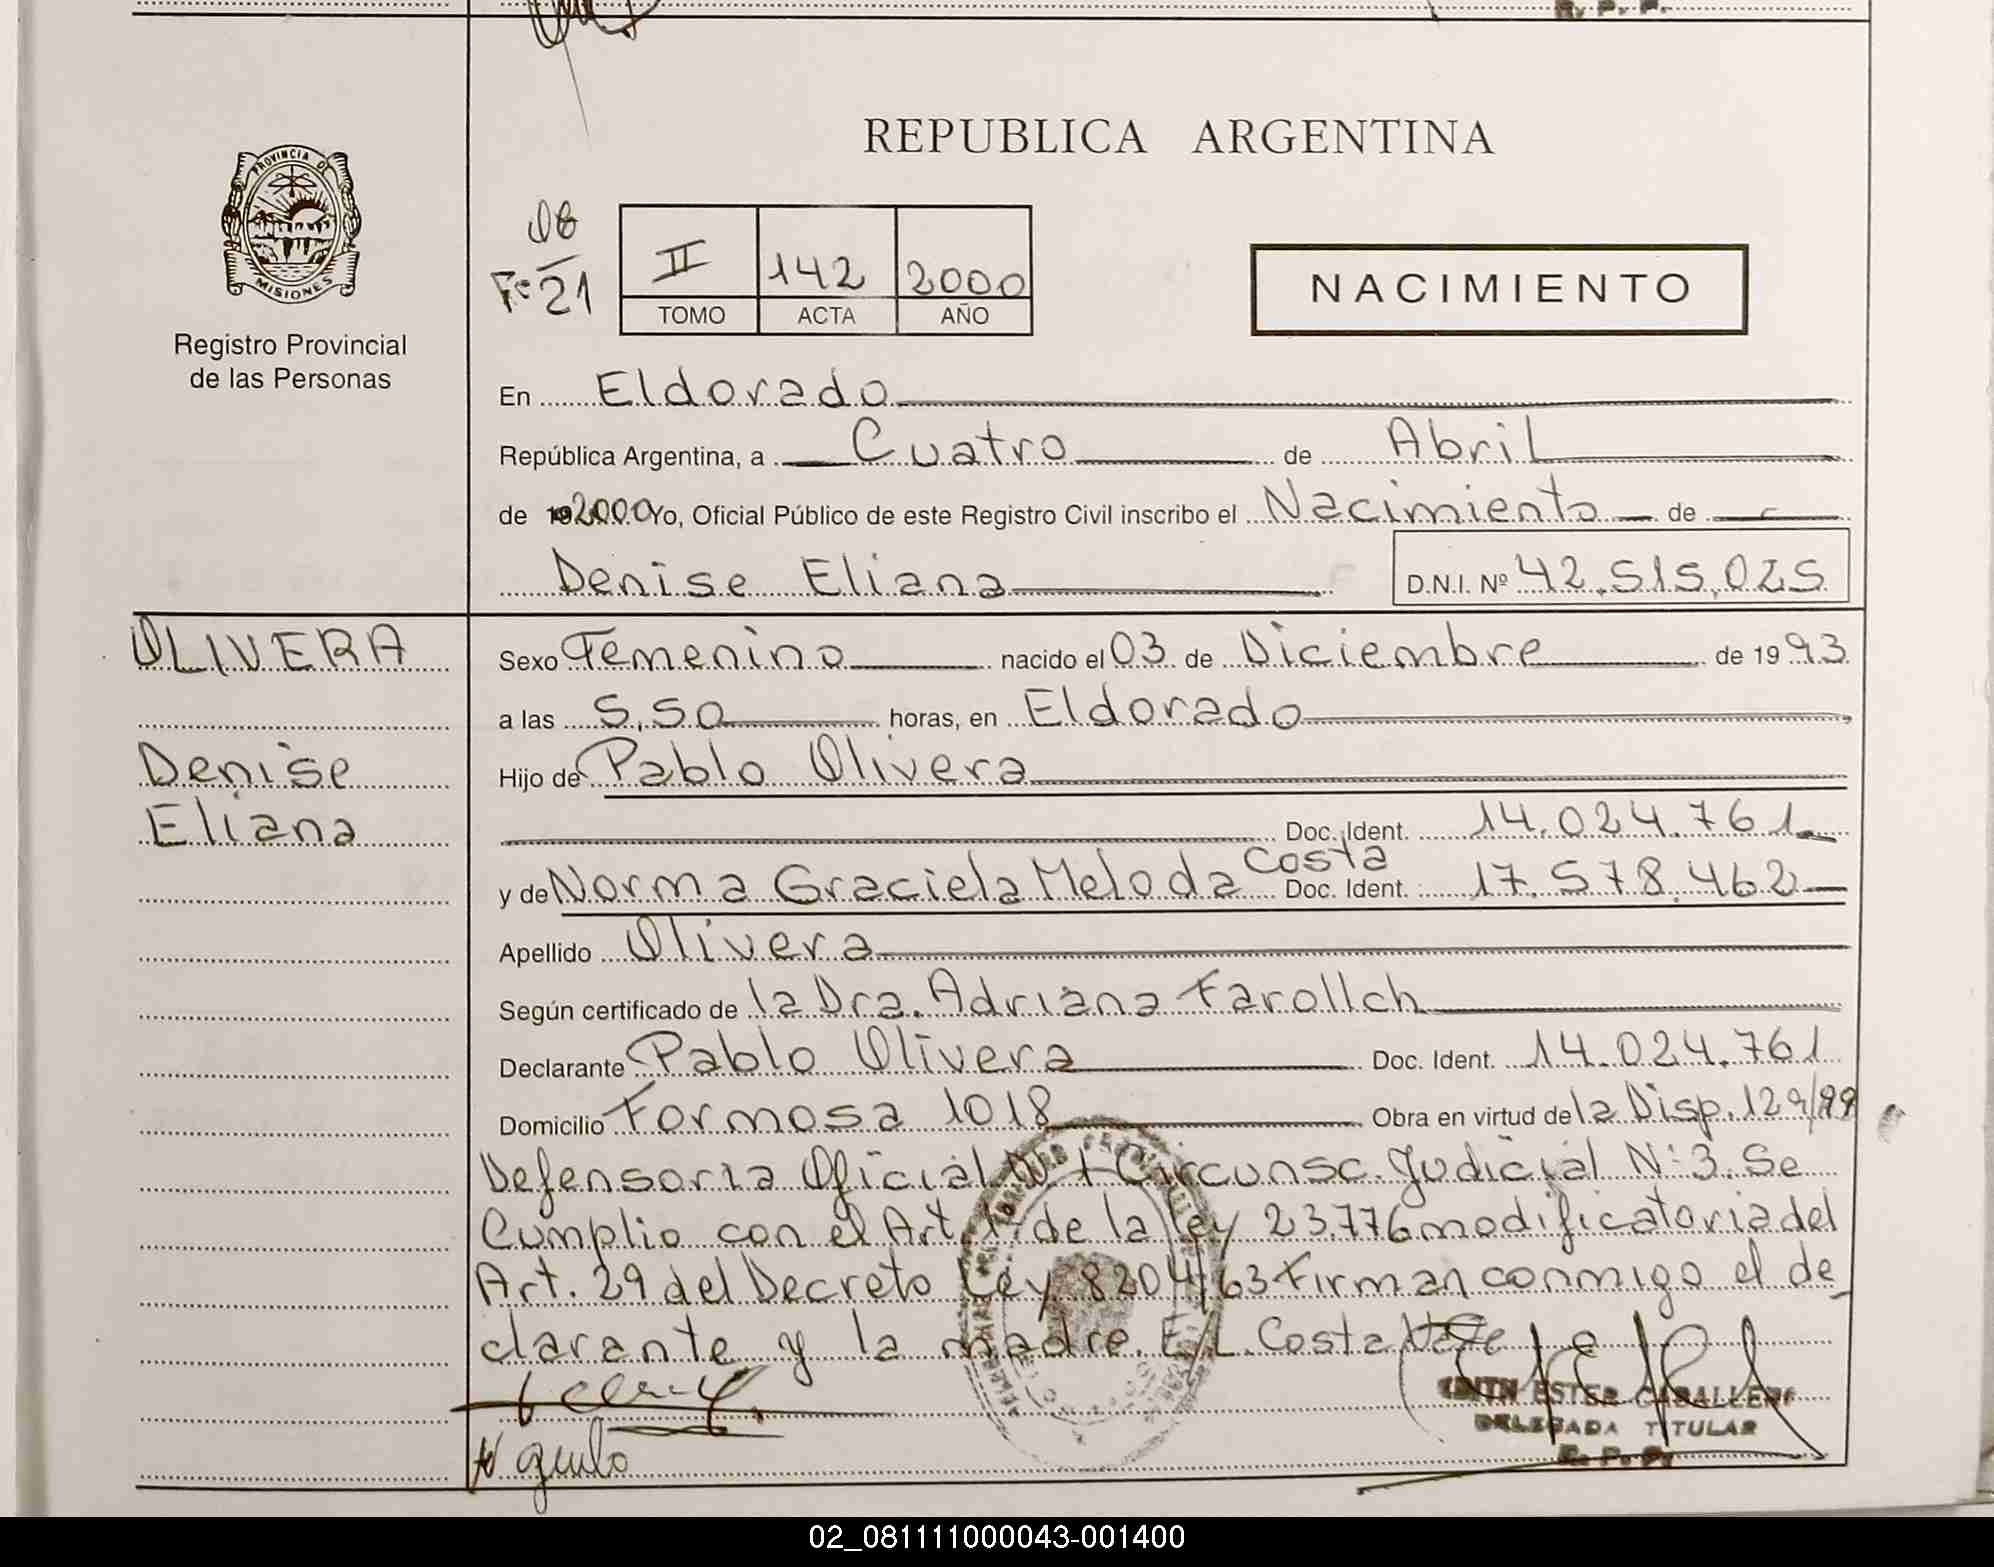 REPUBLICA ARGENTINA
PROVINCIA DE
MISIONES
Registro Provincial
de las Personas
II 142 2000
Fº 21
TOMO ACTA AÑO
NACIMIENTO
En Eldorado
República Argentina, a Cuatro de Abril
de 2000 Yo, Oficial Público de este Registro Civil inscribo el Nacimiento de
Denise Eliana D.N.I. Nº 42.515.025
OLIVERA
Denise
Eliana
Sexo Femenino nacido el 03 de Diciembre de 1993
a las 5,50 horas, en Eldorado
Hijo de Pablo Olivera
Doc. Ident. 14.024.761
Costa
y de Norma Graciela Meloda Doc. Ident. 17.578.462
Apellido Olivera
Según certificado de la Dra. Adriana Farollch
Declarante Pablo Olivera Doc. Ident. 14.024.761
Domicilio Formosa 1018 Obra en virtud de la Disp. 129/99
Defensoria Oficial Nº 1 Circunsc. Judicial Nº 3. Se
Cumplio con el Art. 1º de la ley 23.776 modificatoria del
Art. 29 del Decreto Ley 8204/63 Firman conmigo el de_
clarante y la madre. E/L. Costa Vale
EDITH ESTER CABALLERO
DELEGADA TITULAR
R. P. P.
02_081111000043-001400